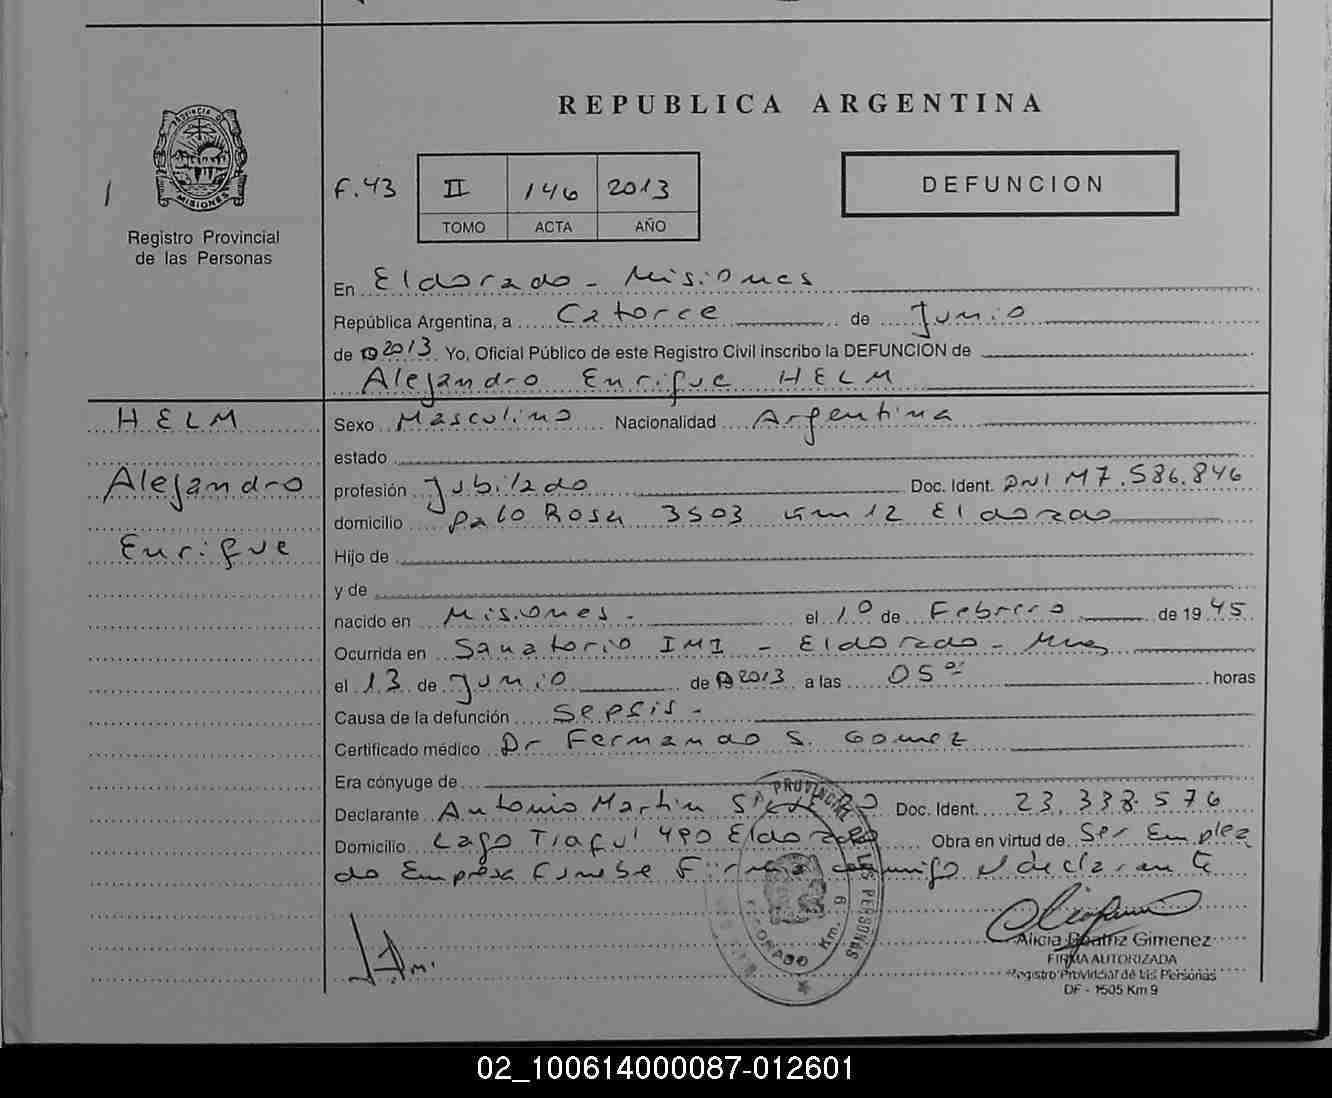 REPUBLICA ARGENTINA
PROVINCIA D
MISIONES
Registro Provincial
de las Personas
1
F.43 II 146 2013
TOMO ACTA AÑO
DEFUNCION
En Eldorado - Misiones
República Argentina, a Catorce de Junio
de 2013 Yo, Oficial Público de este Registro Civil inscribo la DEFUNCION de
Alejandro Enrique HELM
HELM
Alejandro
Enrique
Sexo Masculino Nacionalidad Argentina
estado
profesión Jubilado Doc. Ident. DNI M7.586.846
domicilio Palo Rosa 3503 Km 12 Eldorado
Hijo de
y de
nacido en Misiones - el 1º de Febrero de 1945
Ocurrida en Sanatorio IMI - Eldorado - Mnes
el 13 de Junio de 2013 a las 05 horas
Causa de la defunción Sepsis -
Certificado médico Dr Fernando S. Gomez
Era cónyuge de
Declarante Antonio Martin Doc. Ident. 23.338.576
Domicilio Lago 490 Eldorado Obra en virtud de Ser Emplea
do Empresa Funebre Firma conmigo el declarante
PROVINCIAL LAS PERSONAS
Km. 9
Alicia Beatriz Gimenez
FIRMA AUTORIZADA
Registro Provincial de las Personas
DF - 1505 Km 9
02_100614000087-012601